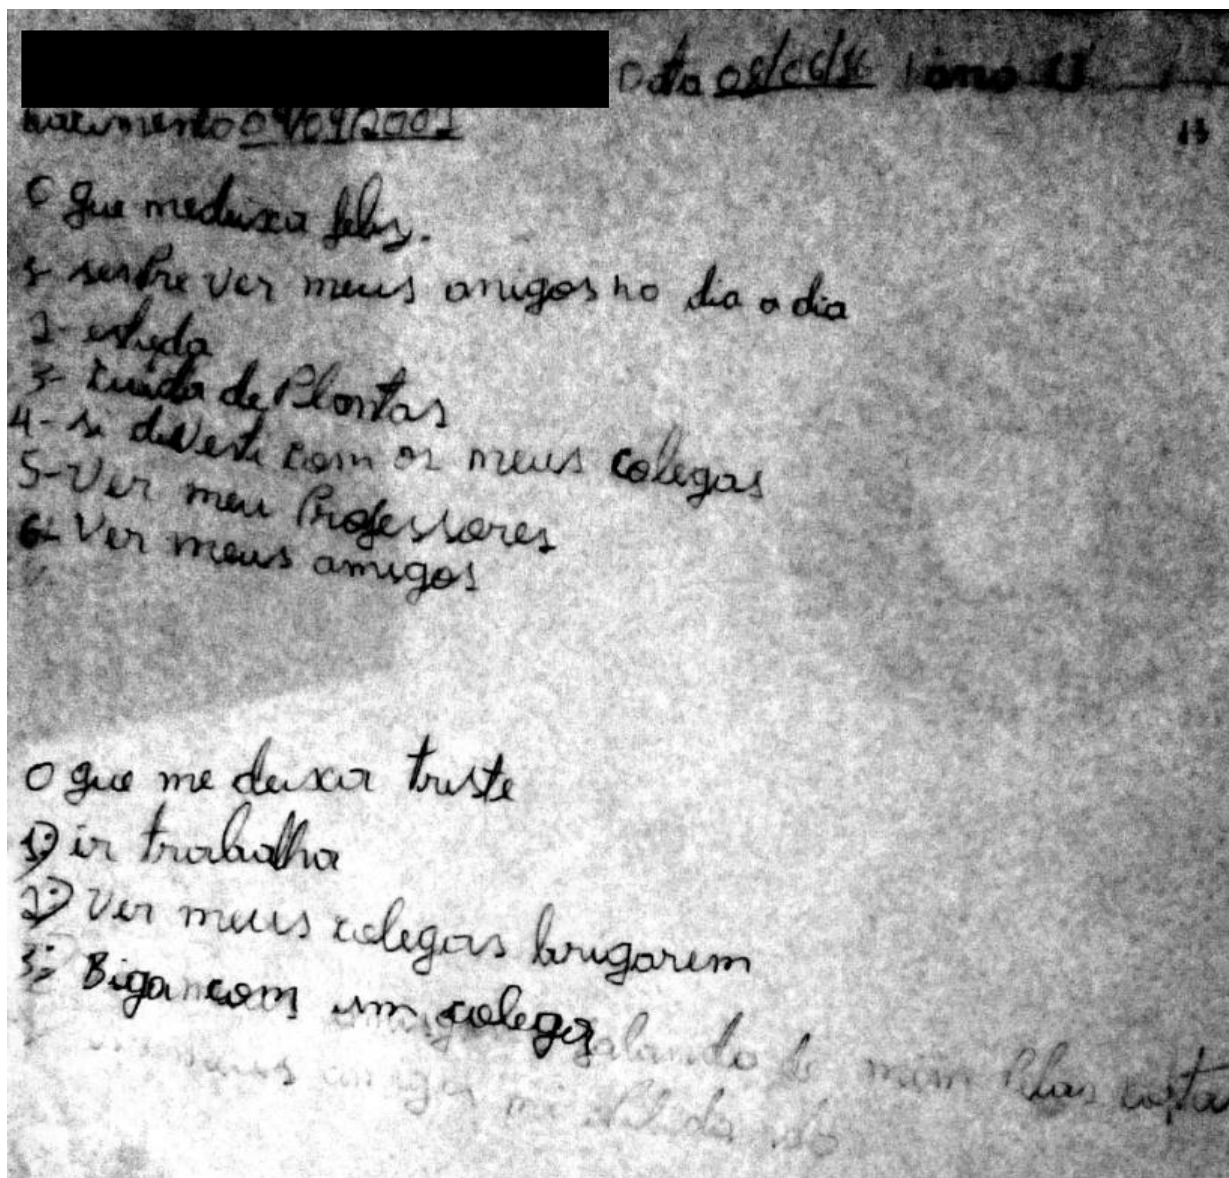 Data 08/06/16 1 ano
nacimento 09/09/2001
13
O que medeixa felis.
1- senpre ver meus amigos no dia a dia
2- estuda
3- cuida de Plantas
4- si diverti com os meus colegas
5- Ver meu Professores
6- Ver meus amigos
O que me deixa triste
1) ir trabalha
2) Ver meus colegas brigarem
3) Biga com um colega
falando de mim Pelas costas
meus amigos me